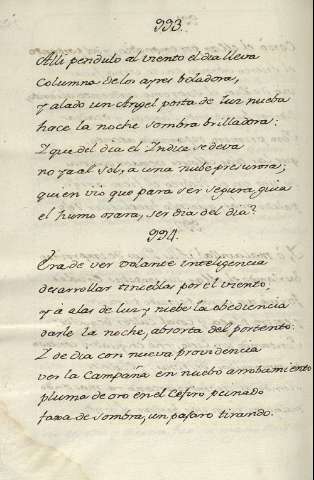 993.
Alli pendulo al viento el dia lleva
Columna de los ayres boladora,
y alado un Angel porta de luz nueba
hace la noche sombra brilladora:
I que del dia el Indice se deva
no ya al sol, a una nube presurosa;
quien vio que para ser segura guia
el humo osara, ser dia del dia?
994.
Era de ver volante inteligencia
desarrollar tinieblas por el viento,
y à alas de luz y niebe la obediencia
darle la noche, absorta del portento:
I de dia con nueva providencia
ver la Campaña en nuebo arrobamiento
pluma de oro en el Cefiro peinado
faxa de sombra, un paxaro tirando.